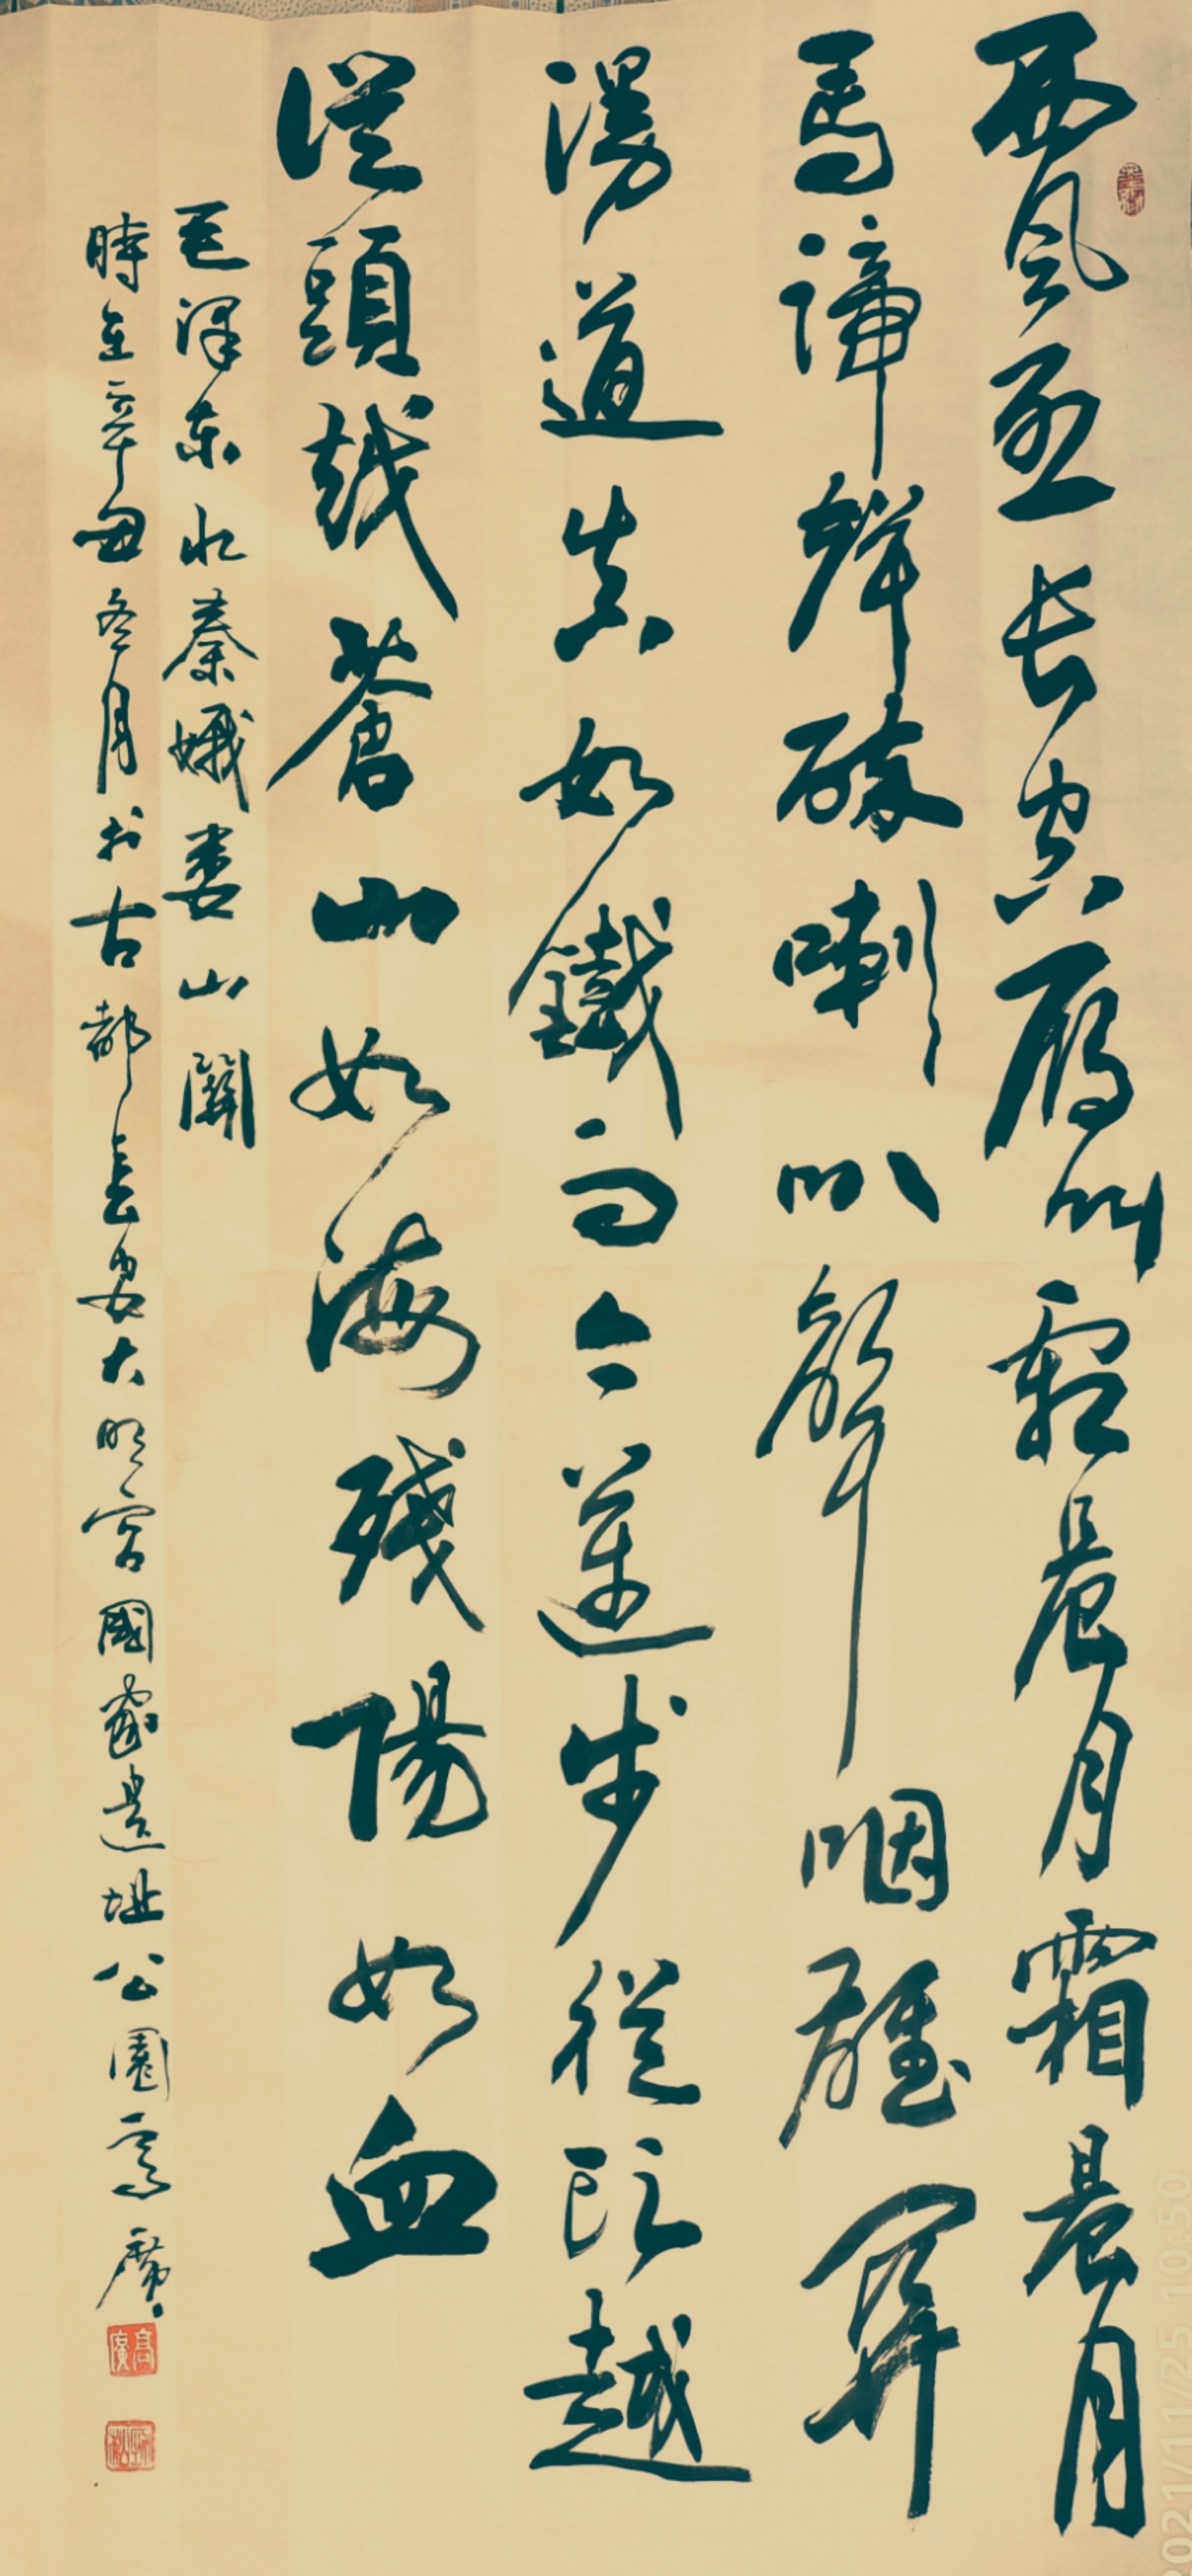 西風烈長空雁叫霜晨月霜晨月
馬蹄聲碎喇叭聲咽雄關
漫道真如鐵而今邁步從頭越
從頭越蒼山如海殘陽如血
毛澤東忆秦娥婁山關
時在辛丑冬月於古都長安大明宮國家遺址公園高廣
高廣
2021/11/25 10:50